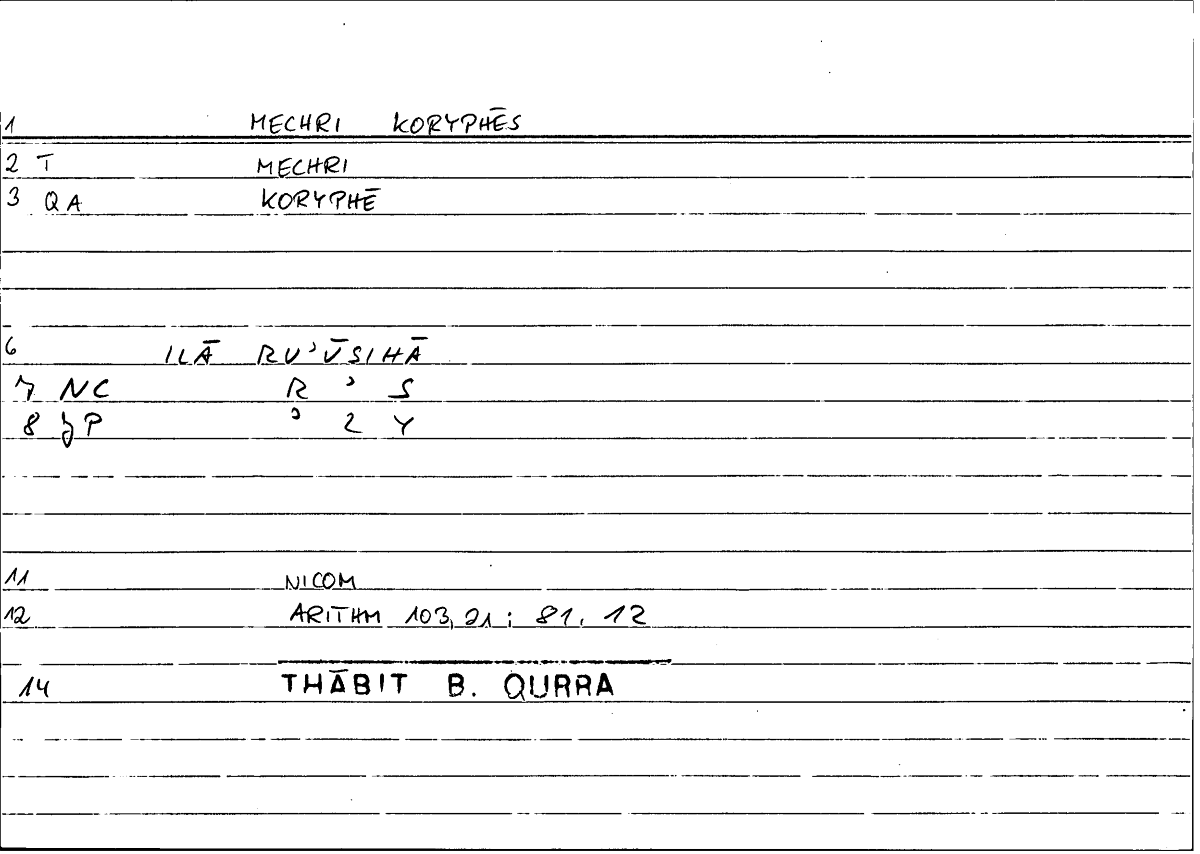 1 MECHRI KORYPHĒS
2 T MECHRI
3 QA KORYPHĒ
6 ILĀ RUʾŪSIHĀ
7 NC R ʾ S
8 P ʾ 2 Y
11 NICOM
12 ARITHM 103,21; 81,12
14 THĀBIT B. QURRA